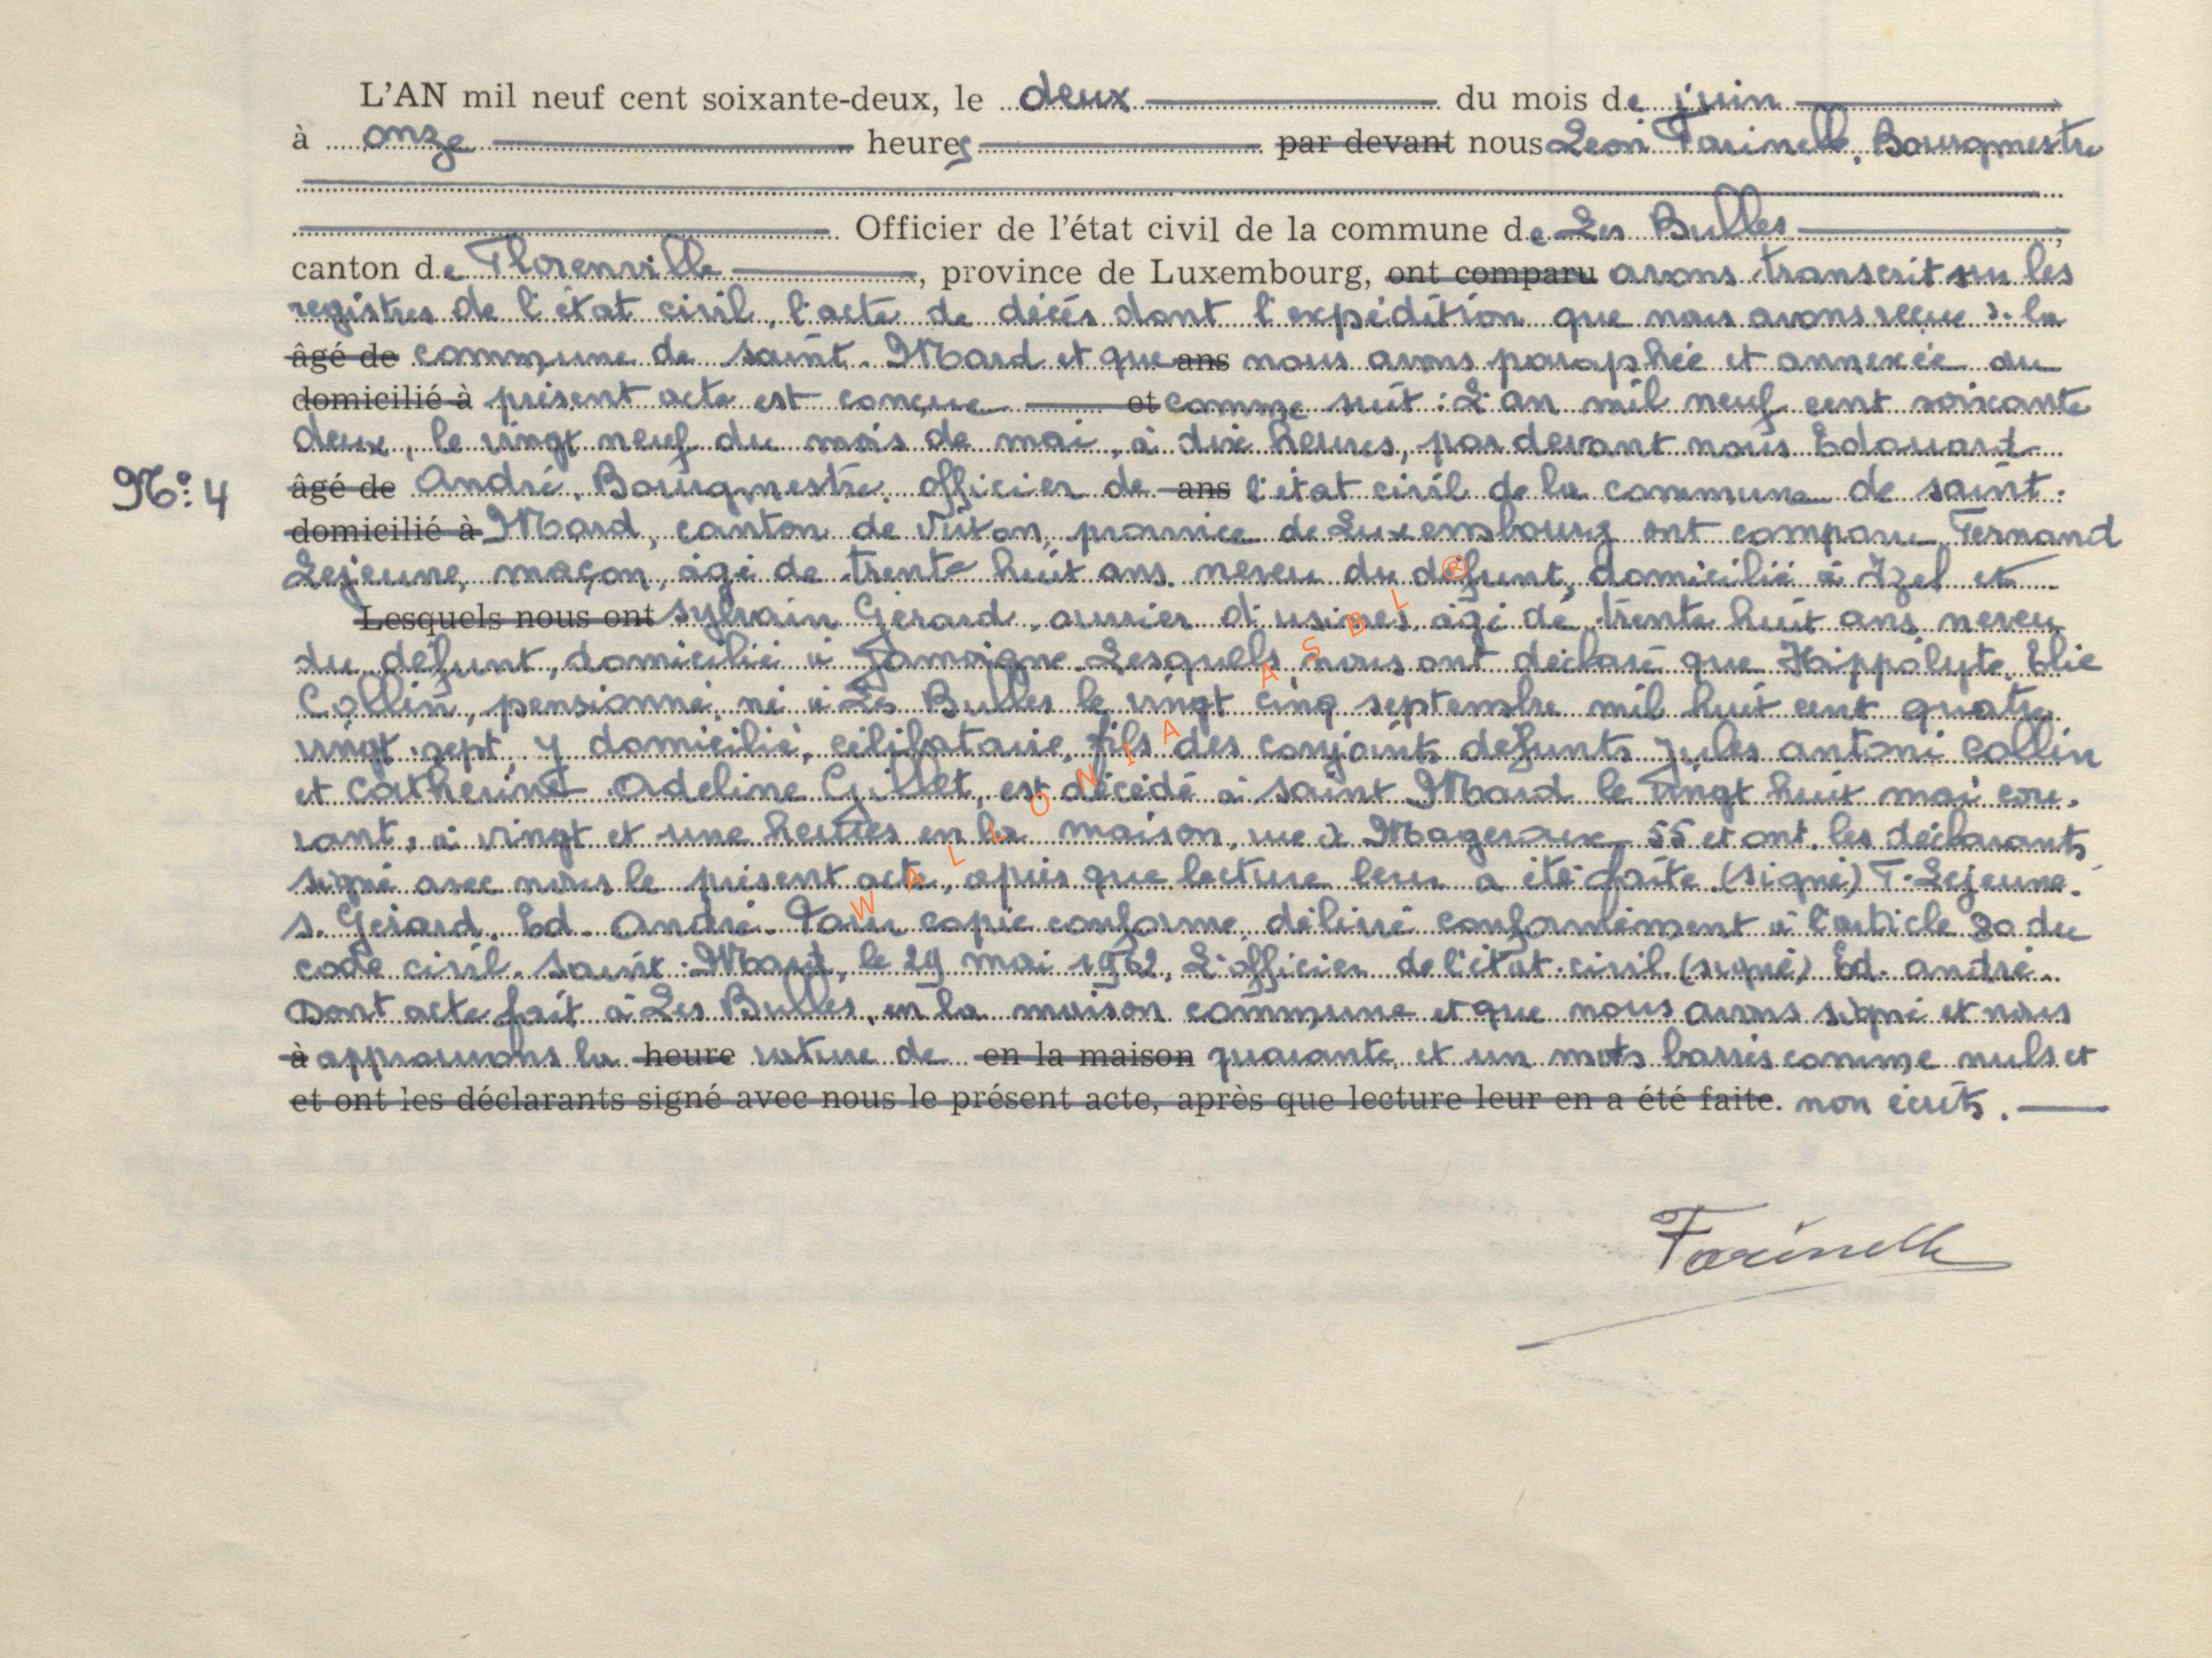 L'AN mil neuf cent soixante-deux, le deux du mois de juin
à onze heures par devant nous Léon Farinelle, Bourgmestre
Officier de l'état civil de la commune de Les Bulles,
canton de Florenville, province de Luxembourg, ont comparu avons transcrit sur les
registres de l'état civil, l'acte de décès dont l'expédition que nous avons reçue de la
âgé de commune de Saint-Mard et que ans nous avons paraphée et annexée au
domicilié à présent acte est conçue et comme suit : L'an mil neuf cent soixante
deux, le vingt neuf du mois de mai, à dix heures, par devant nous Edouard
N° 4
âgé de André, Bourgmestre, officier de ans l'état civil de la commune de Saint-
domicilié à Mard, canton de Virton, province de Luxembourg ont comparu Fernand
Lejeune, maçon, âgé de trente huit ans, neveu du défunt, domicilié à Izel et
Lesquels nous ont Sylvain Gérard, ouvrier d'usines, âgé de trente huit ans, neveu
du défunt, domicilié à Jamoigne. Lesquels nous ont déclaré que Hippolyte, Elie
Collin, pensionné, né à Les Bulles le vingt cinq septembre mil huit cent quatre
vingt-sept, y domicilié, célibataire, fils des conjoints défunts Jules Antoni Collin
et Catherine Adeline Gillet, est décédé à Saint Mard le vingt huit mai cou-
rant, à vingt et une heures en la maison, rue de Mageroux 55 et ont les déclarants
signé avec nous le présent acte, après que lecture leur a été faite. (signé) F. Lejeune.
S. Gérard. Ed. André. Pour copie conforme, délivré conformément à l'article 80 du
code civil. Saint-Mard, le 29 mai 1962, L'officier de l'état civil (signé) Ed. André.
Dont acte fait à Les Bulles, en la maison commune et que nous avons signé et nous
à approuvons la heure rature de en la maison quarante et un mots barrés comme nuls et
et ont les déclarants signé avec nous le présent acte, après que lecture leur en a été faite. non écrits.
Farinelle
WALLONIA ASBL ®